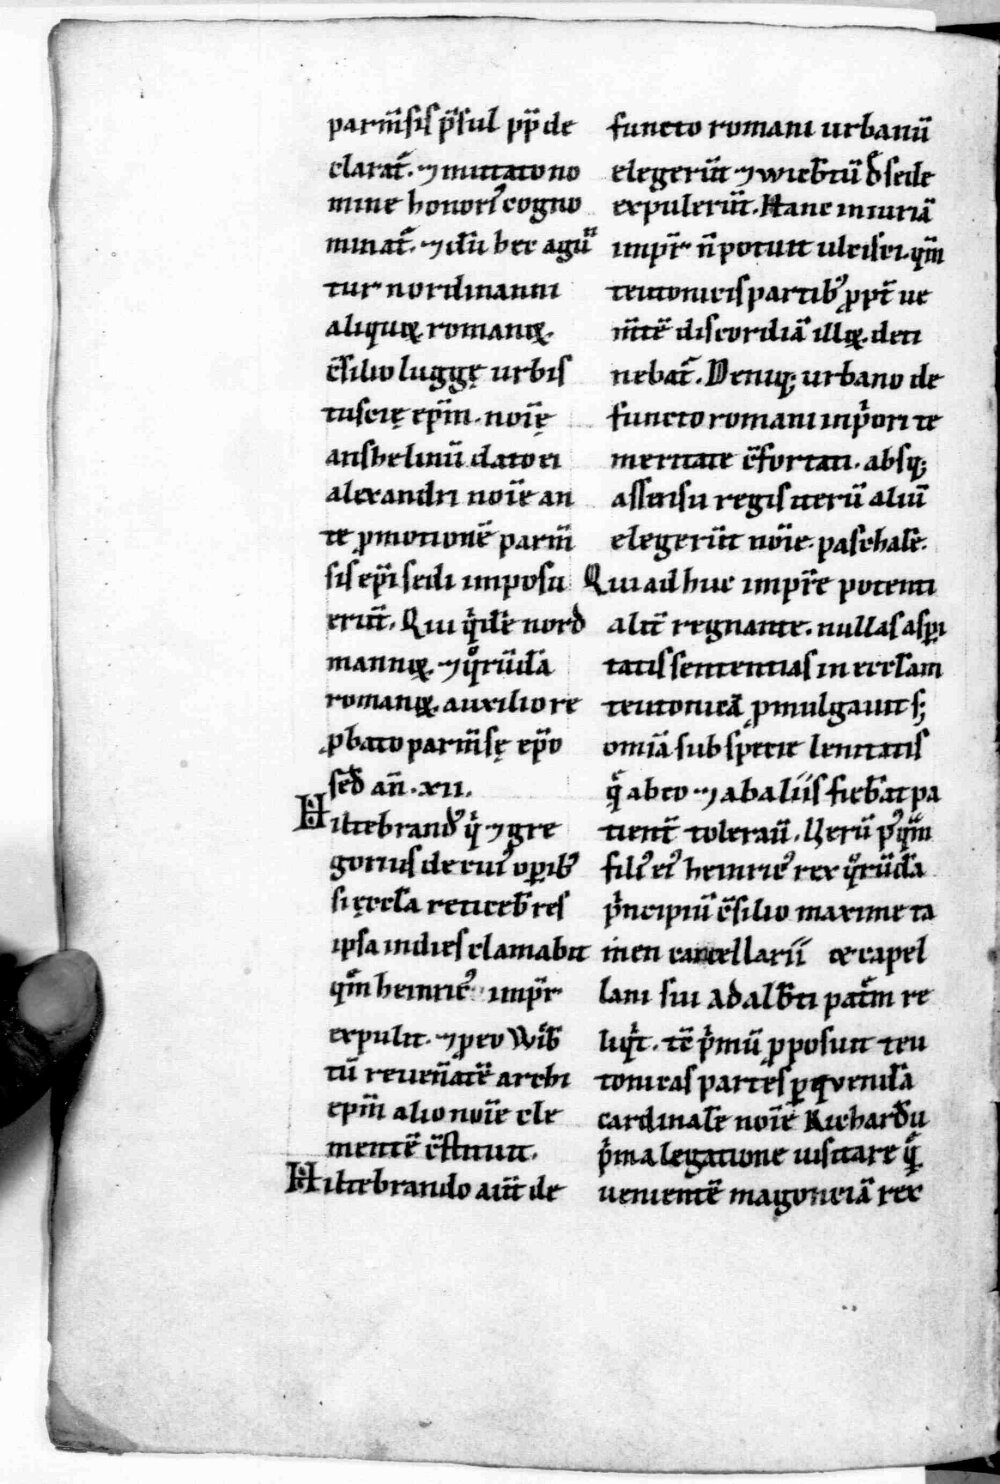 parm̅sis p̅sul pp̅ de
clarat̅. ⁊ mutato no
mine honori᷒ cogno
minat̅. ⁊ du̅ hec agu̅
tur nordmanni
aliquiꝝ romaniꝝ.
c̅silio luggę urbis
tuscię ep̅m. noi̅ę
anshelinu̅ dato ei
alexandri noi̅e an
te ꝓmotione̅ parm̅
sis ep̅i sedi imposu
eru̅t. Qui q̅de̅ nord
manniꝝ. ⁊ q̅ru̅da̅
romaniꝝ. auxilio re
ꝓbato parm̅sę ep̅o
sed̅ an̅. xii.
Hiltebrand᷒ q̅ ⁊ gre
gorius de cui᷒ oꝑib᷒
si ęccl̅a reticeb̅ res
ipsa indies clamabit
qm̅ heinric᷒ imp̅r
expulit. ⁊ ꝑ eo Wib̅
tu̅ reuen̅ate̅ archi
ep̅m alio noi̅e cle
mente̅ c̅stituit.
Hiltebrando au̅t de
functo romani urbanu̅
elegeru̅t ⁊ wicb̅tu̅ d̅ sede
expuleru̅t. Hanc iniuria̅
imp̅r n̅ potuit ulcisci. qm̅
teutonicis partib᷒ ꝓpt̅ ue
m̅te̅ discordia̅ illiꝝ. deti
nebat̅. Deniq; urbano de
functo romani inp̅ori te
meritate c̅fortati. absq;
assensu regis iteru̅ aliu̅
elegeru̅t noi̅e. paschale̅.
Qui ad huc imp̅re potenti
alit̅ regnante. nullas asꝑi
tatis sententias in eccl̅am
teutonica̅ ꝓmulgauit s;
omia̅ sub specie lenitatis
q̅ ab eo ⁊ ab aliis fieb̅at pa
tient̅ tolerau̅. Ueru̅ p᷒qm̅
fili᷒ ei᷒ heinric᷒ rex q̅ru̅da̅
p̅ncipiu̅ c̅silio maxime ta
men cancellarii ce capel
lani sui adalb̅ti pat̅m re
liq̅t. te̅ p̅mu̅ ꝓposuit teu
tonicas partes ꝑ quenda̅
cardinale̅ noi̅e Richardu̅
p̅ma legatione uisitare q̅
ueniente̅ magoncia̅ rex